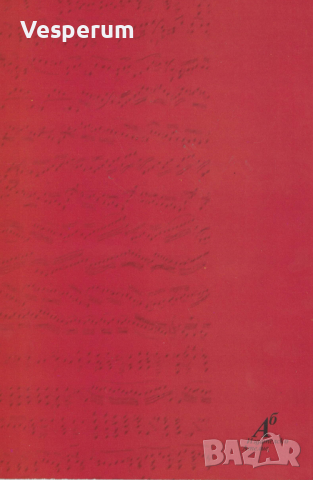 Vesperum
Аб
BAZAR